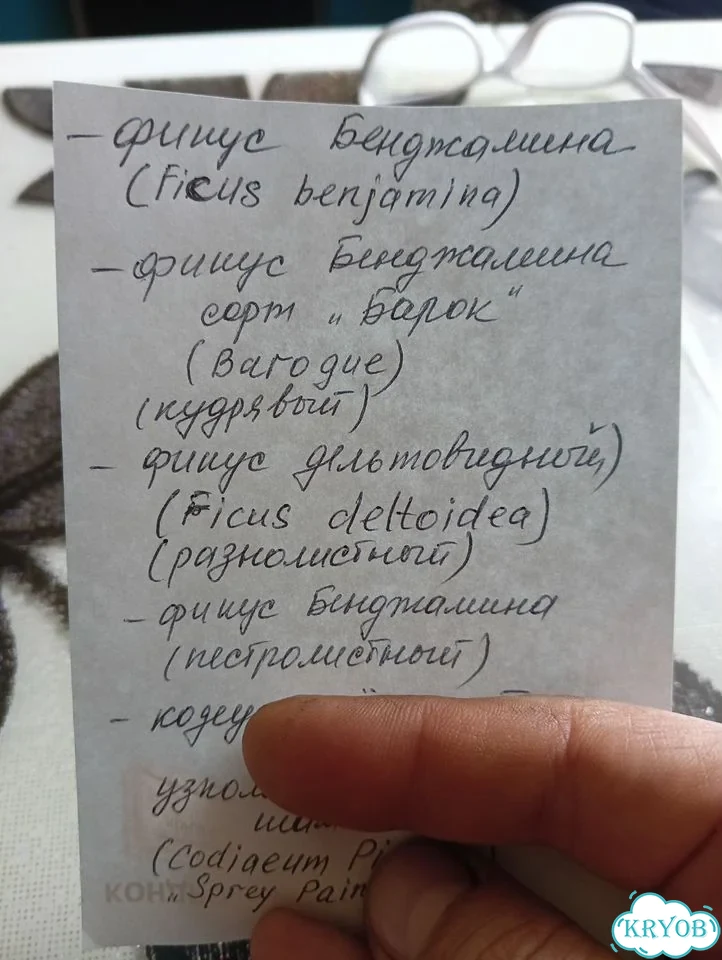 - фикус Бенджамина
(Ficus benjamina)
- фикус Бенджамина
сорт „Барок"
(Baroque)
(кудрявый)
- фикус дельтовидный)
(Ficus deltoidea)
(разнолистный)
- фикус Бенджамина
(пестролистный)
-
(Codiaeum
„Sprey
KRYOB